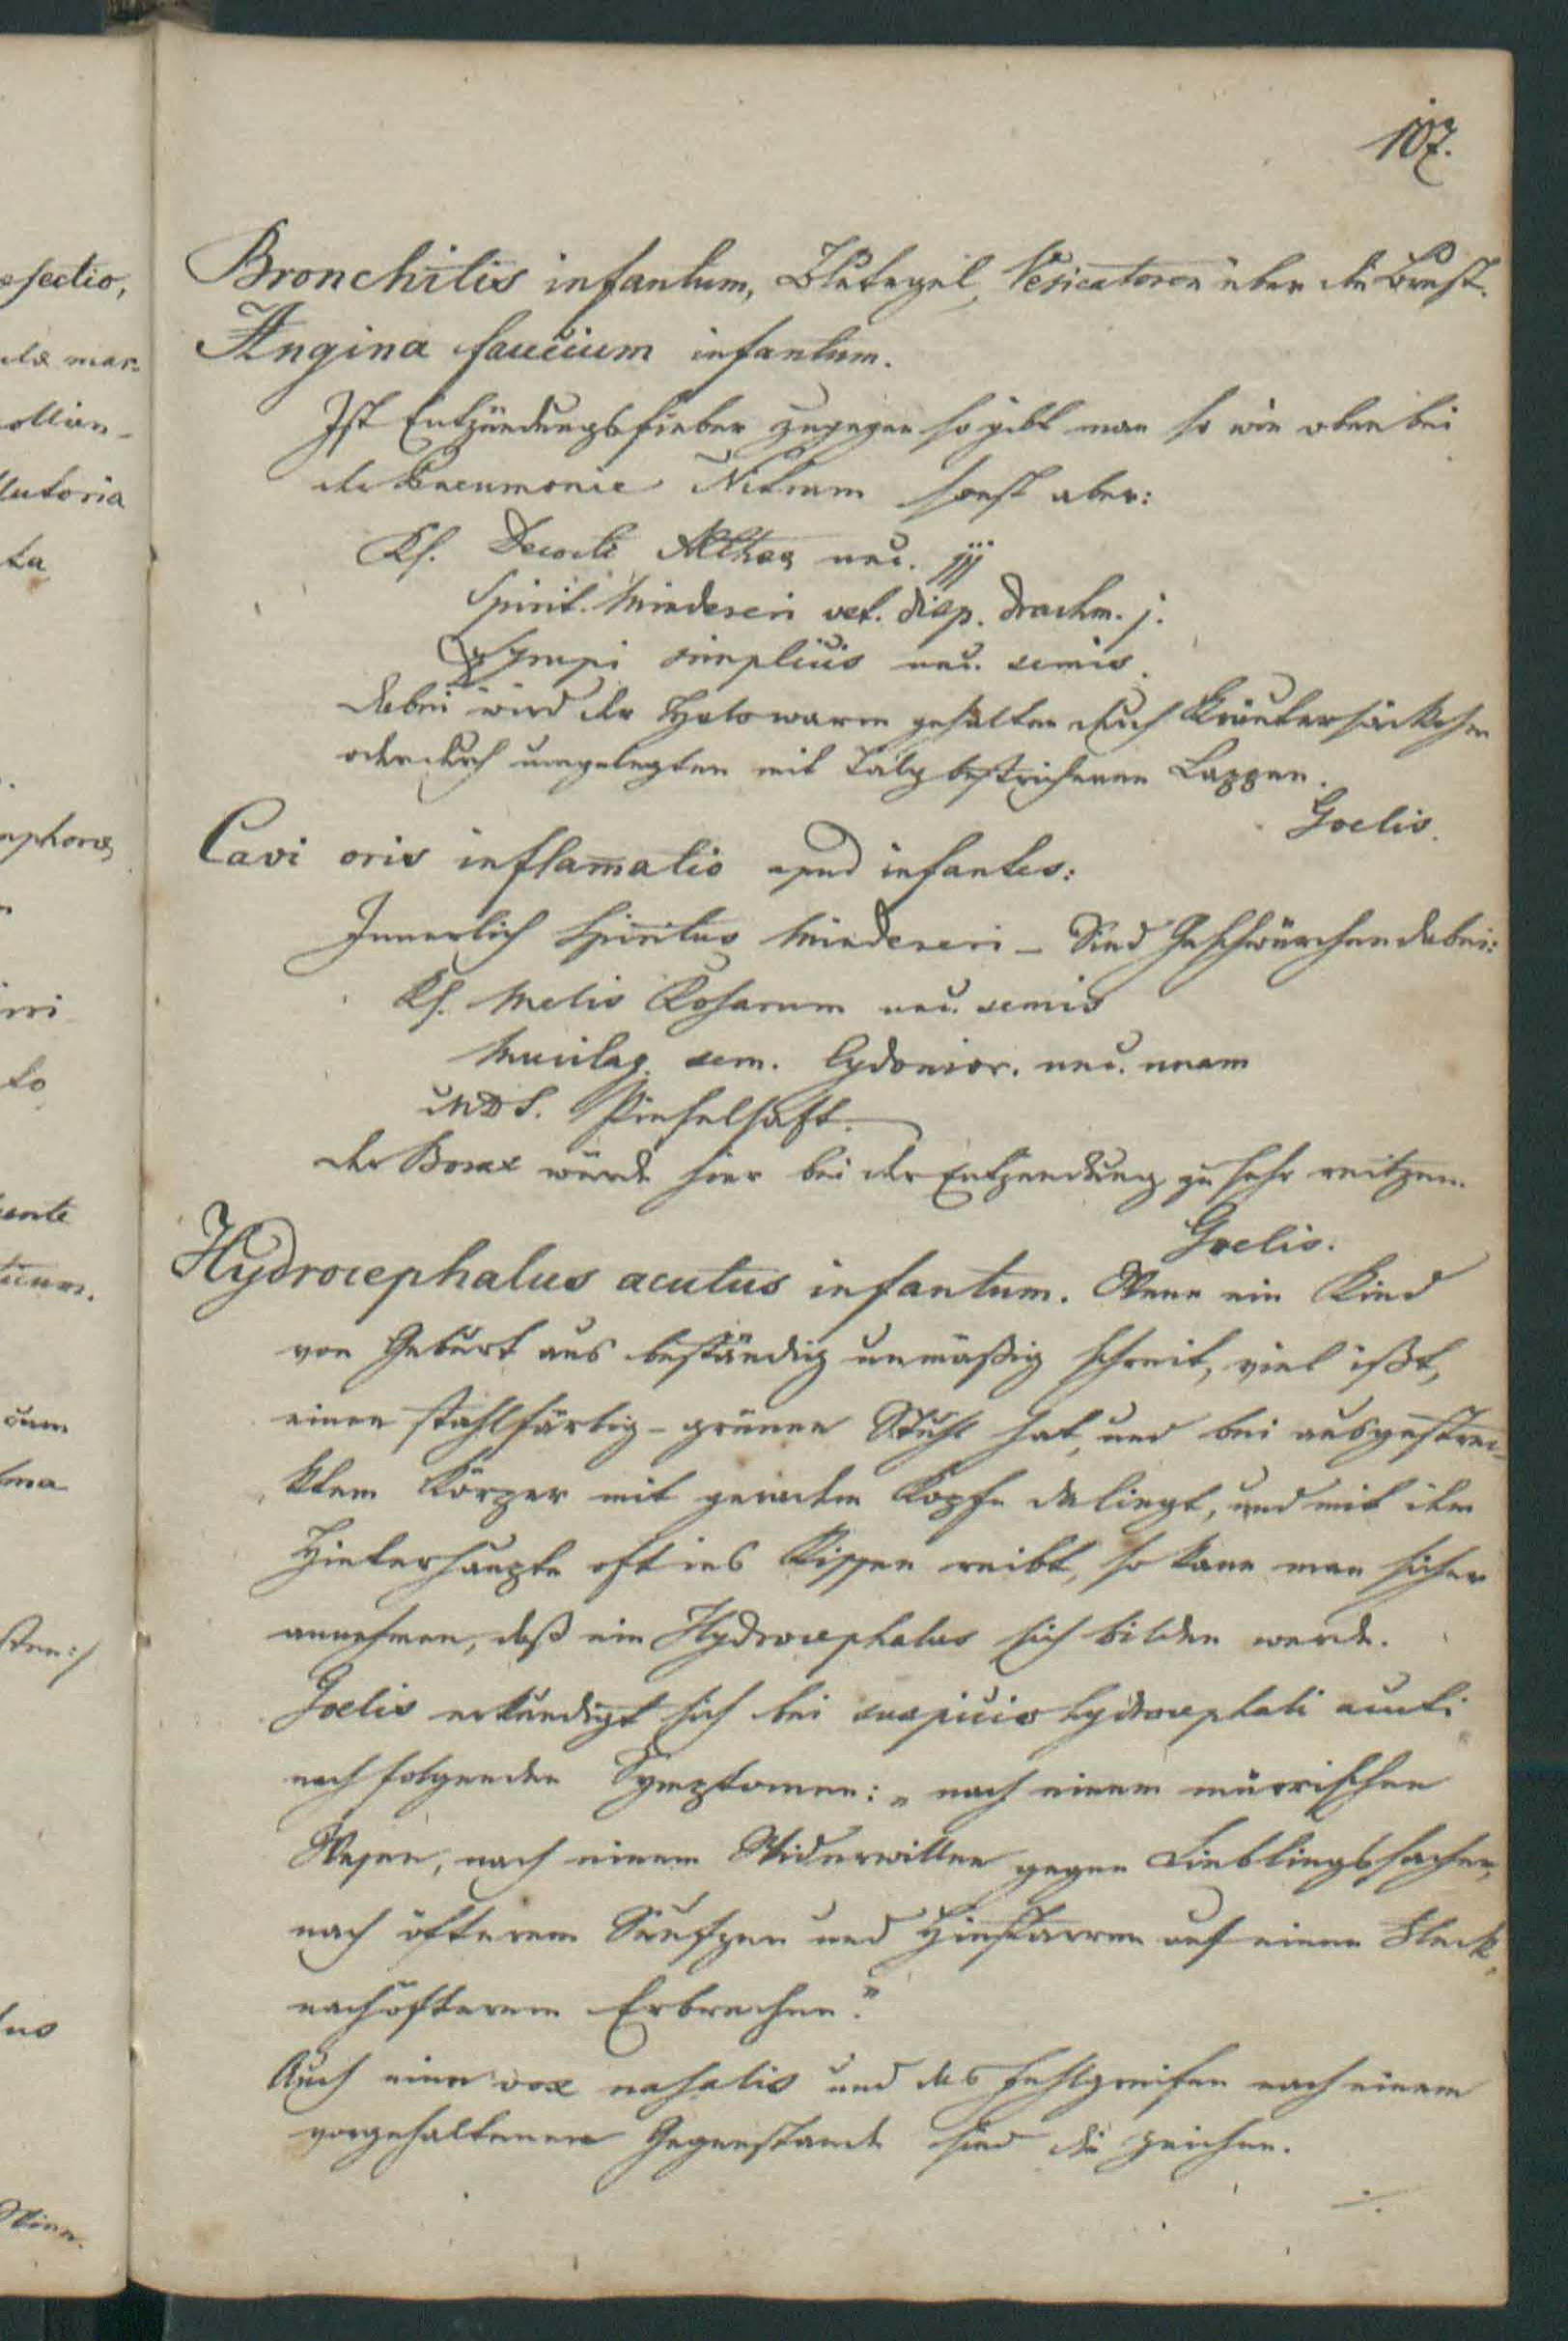 107.
Bronchitis infantum, Blutegel, Vesicatore über die Brust.
Angina faucium infantum.
Ist Entzündungsfieber zugegen so gibt man so wie oben bei
der Pneumonie Nitrum sonst aber:
Rs. Decocti Altheæ unc. jjj
Spirit. Mindereri vet. disp. drachm. j.
Syrupi simplicis unc. semis.
dabei wird der Hals warm gehalten durch Kräutersäckchen
oder durch umgelegten mit Talg bestrichenen Lappen.
Goelis.
Cavi oris inflam̅atio apud infantes:
Innerlich Spiritus Mindereri – Sind Geschwürchen dabei:
Rs. Melis Rosarum unc. semis
Mucilag. sem. Cydonior. unc. unam
MDS. Pinselsaft.
der Borax würde hier bei der Entzendung zu sehr reitzen.
Goelis.
Hydrocephalus acutus infantum. Wenn ein Kind
von Geburt aus beständig unmäßig schreit, viel ißt,
einen stahlfärbig-grünen Stuhl hat, und bei ausgestre-
cktem Körper mit geradem Kopfe daliegt, und mit dem
Hinterhaupte oft ins Kissen reibt, so kann man sicher
annehmen, daß ein Hydrocephalus sich bilden werde.
Goelis erkundigt sich bei suspicio hydrocephali acuti
nach folgenden Symptomen: „nach einem mürrischen
Wesen, nach einem Widerwillen gegen Lieblingssachen,
nach öfterem Seufzen und Hinstarren auf einen Fleck,
nach öfterem Erbrechen."
Auch eine vox nasalis und das Fehlgreifen nach einem
vorgehaltenen Gegenstande sind die Zeichen.
./.
esectio,
mar-
lutoria
ta
mphoræ
to
ente
cum
sten:/
tus